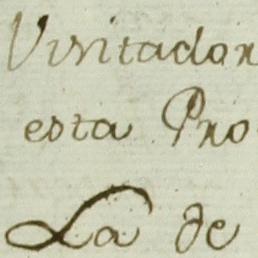 Visitador
esta Pro
La de